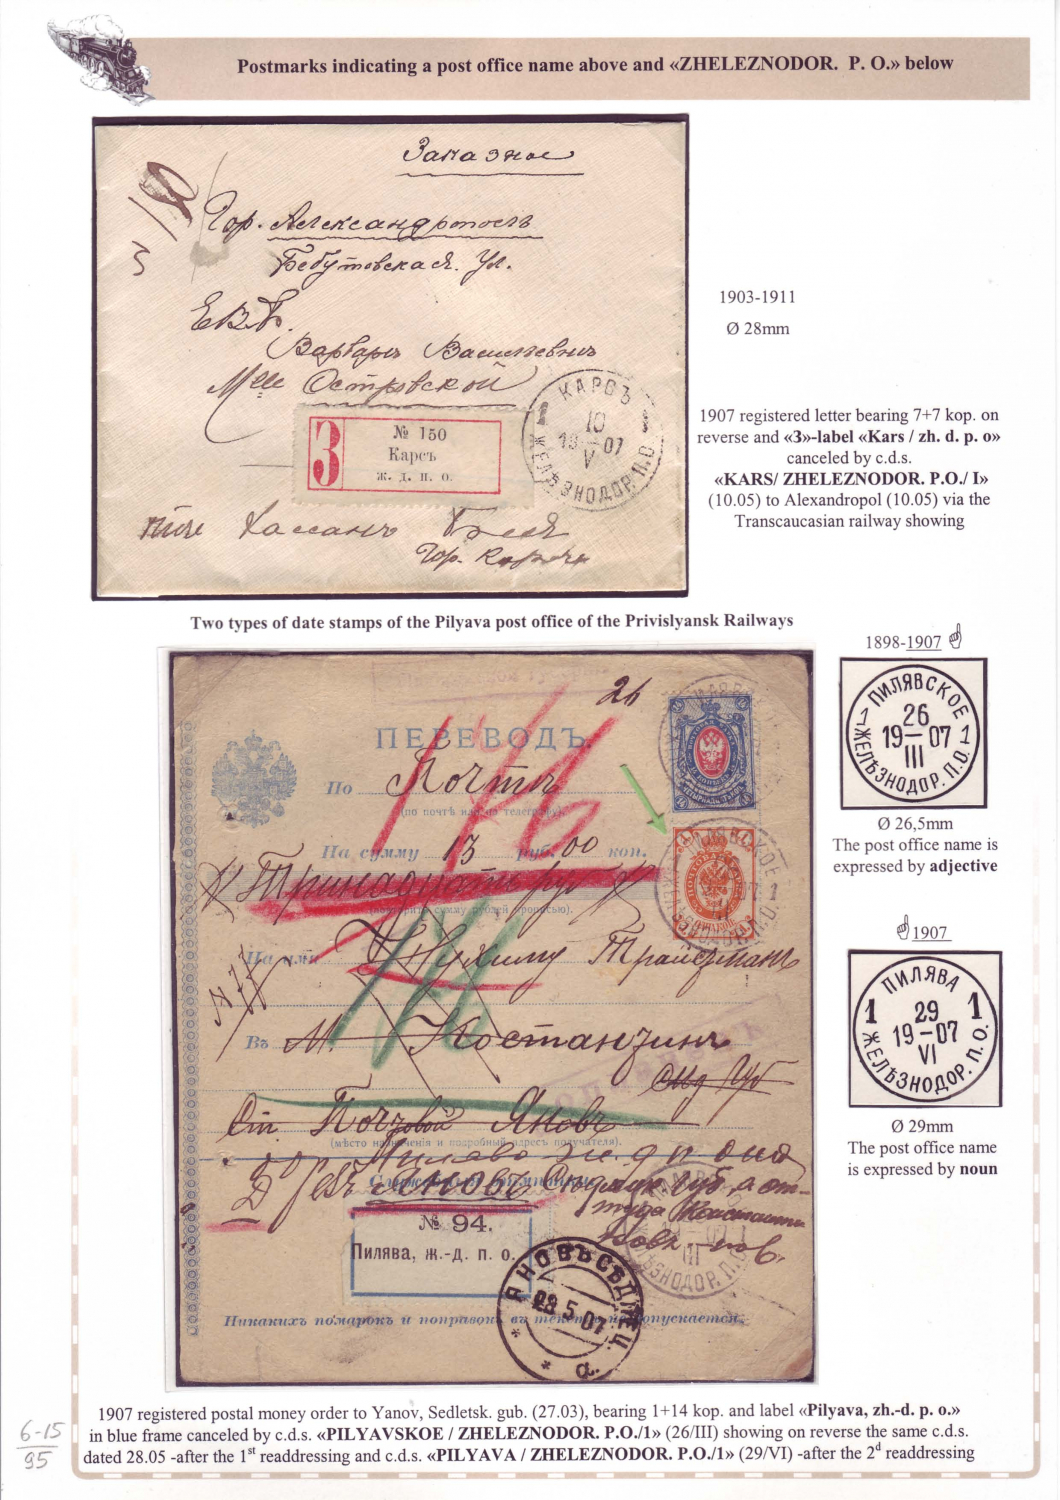 Postmarks indicating a post office name above and «ZHELEZNODOR. P. O.» below
Заказное
Гор. Александрополь
Бебутовская. Ул.
ЕВБ.
Варваре Васильевне
Mlle Островской
КАРСЪ
1 10 1
19–07
V
ЖЕЛѢЗНОДОР. П.О.
З
№ 150
Карсъ
ж. д. п. о.
Гор. Карсъ
1903-1911
Ø 28mm
1907 registered letter bearing 7+7 kop. on
reverse and «З»-label «Kars / zh. d. p. o»
canceled by c.d.s.
«KARS/ ZHELEZNODOR. P.O./ I»
(10.05) to Alexandropol (10.05) via the
Transcaucasian railway showing
Two types of date stamps of the Pilyava post office of the Privislyansk Railways
26
ПЕРЕВОДЪ
По Почте
(по почтѣ или по телеграфу).
На сумму 13 руб. 00 коп.
Тринадцать руб
(повторить сумму рублей прописью).
На имя
Въ М. Костанзин
От Почтовой Яновъ
(мѣсто назначенія и подробный адресъ получателя).
Яновъ
№ 94.
Пилява, ж.-д. п. о.
ЯНОВЪ СѢДЛЕЦ.
28 5 07
* а *
Никакихъ помарокъ и поправокъ въ текстѣ не допускается.
1898-1907
ПИЛЯВСКОЕ
26
1 19–07 1
III
ЖЕЛѢЗНОДОР. П.О.
Ø 26,5mm
The post office name is
expressed by adjective
1907
ПИЛЯВА
1 29 1
19–07
VI
ЖЕЛѢЗНОДОР. П.О.
Ø 29mm
The post office name
is expressed by noun
1907 registered postal money order to Yanov, Sedletsk. gub. (27.03), bearing 1+14 kop. and label «Pilyava, zh.-d. p. o.»
in blue frame canceled by c.d.s. «PILYAVSKOE / ZHELEZNODOR. P.O./1» (26/III) showing on reverse the same c.d.s.
dated 28.05 -after the 1st readdressing and c.d.s. «PILYAVA / ZHELEZNODOR. P.O./1» (29/VI) -after the 2d readdressing
6-15
95